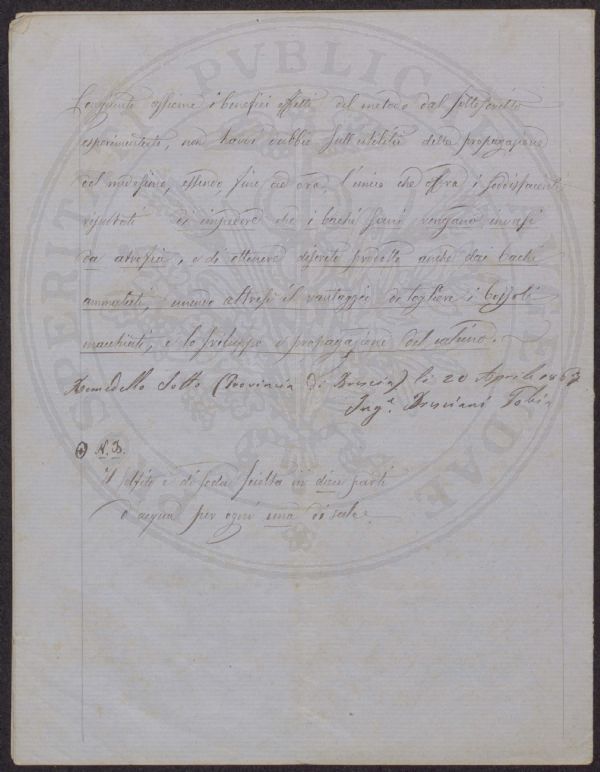 i benefici effetti del metodo dal sottoscritto
esperimentato, non havvi dubbio sull'utilità della propagazione
del medesimo, essendo, fino ad ora, l'unico che offra i soddisfacenti
risultati di impedire che i bachi sani vengano invasi
da atrofia, e di ottenere discreto prodotto anche dai bachi
ammalati, unendo altresì il vantaggio di togliere i bozzoli
macchiati, e lo sviluppo e propagazione del calcino.
Remedello Sotto (Provincia di Brescia) li 20 Aprile 1863
Ing.e Bresciani Tobia
N.B.
Il solfito è di soda sciolta in dieci parti
d'acqua per ogni una di sale.
PVBLIC